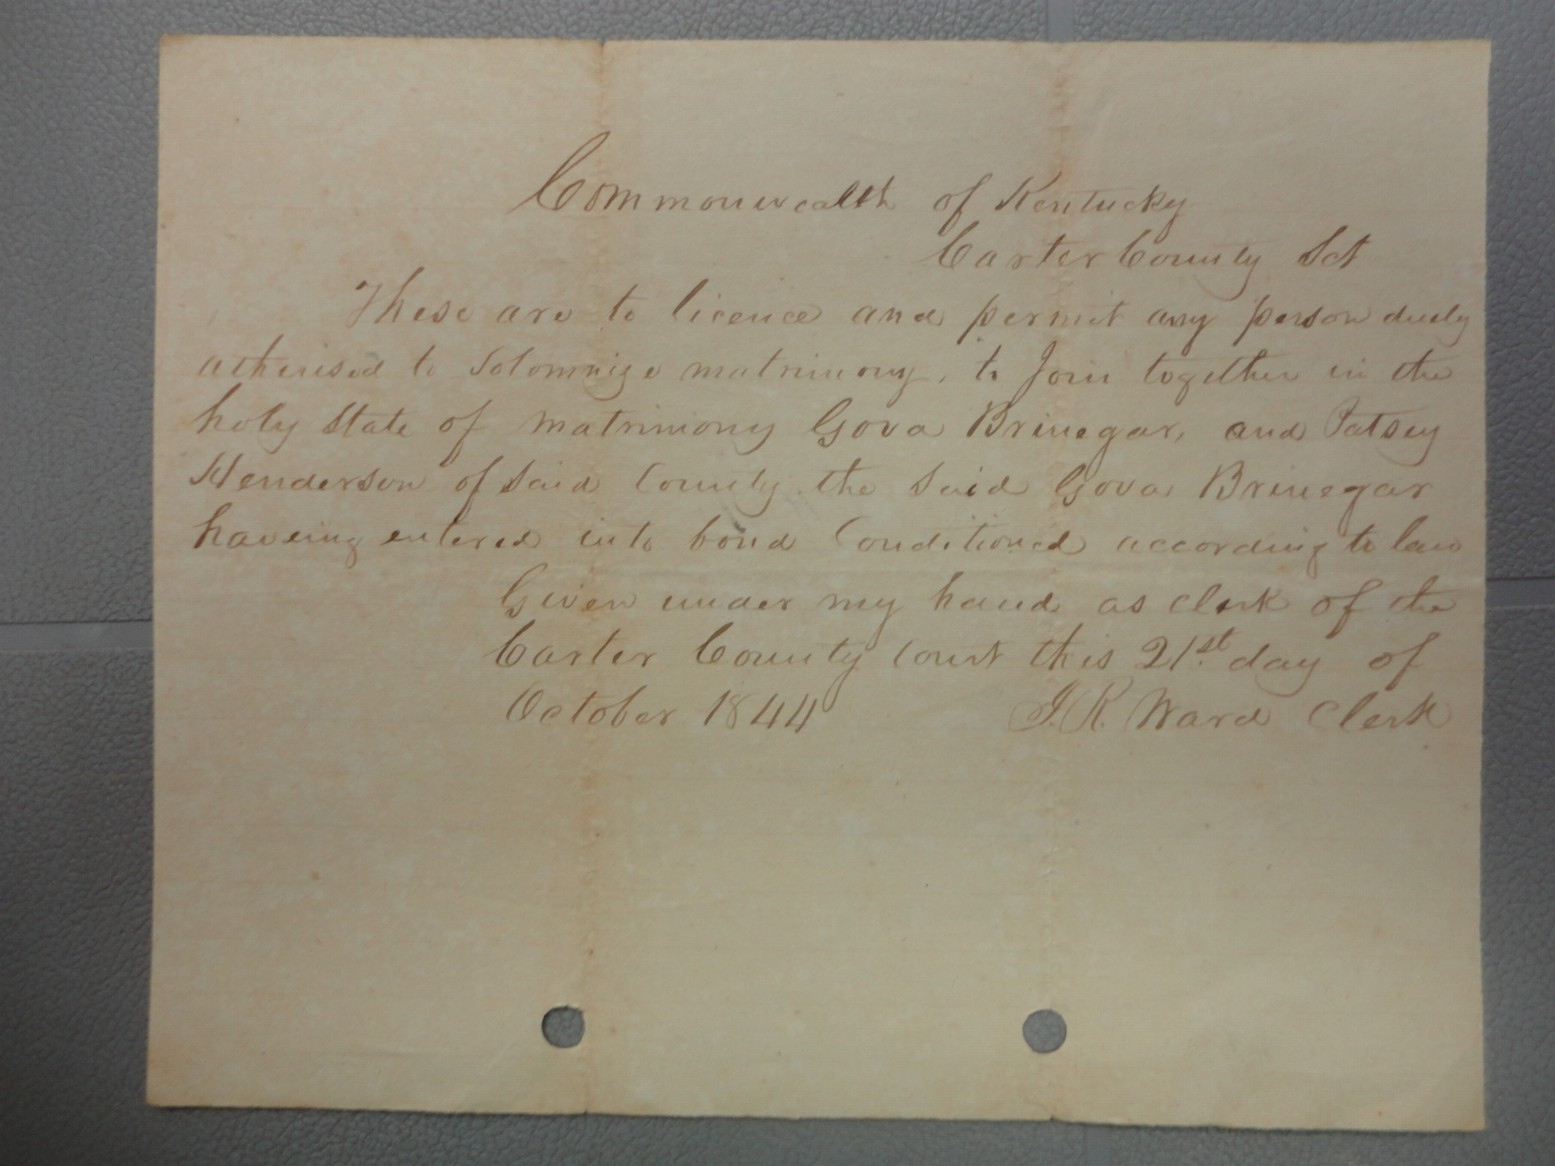 Commonwealth of Kentucky
Carter County Sct
These are to licence and permit any person duely
atherised to Solomnize matrimony, to Join together in the
holy State of Matrimony Gova Brinegar, and Patsey
Henderson of Said County the Said Gova Brinegar
haveing entered into bond Conditioned according to law
Given under my hand as clerk of the
Carter County Court this 21st day of
October 1844 J. R. Ward Clerk